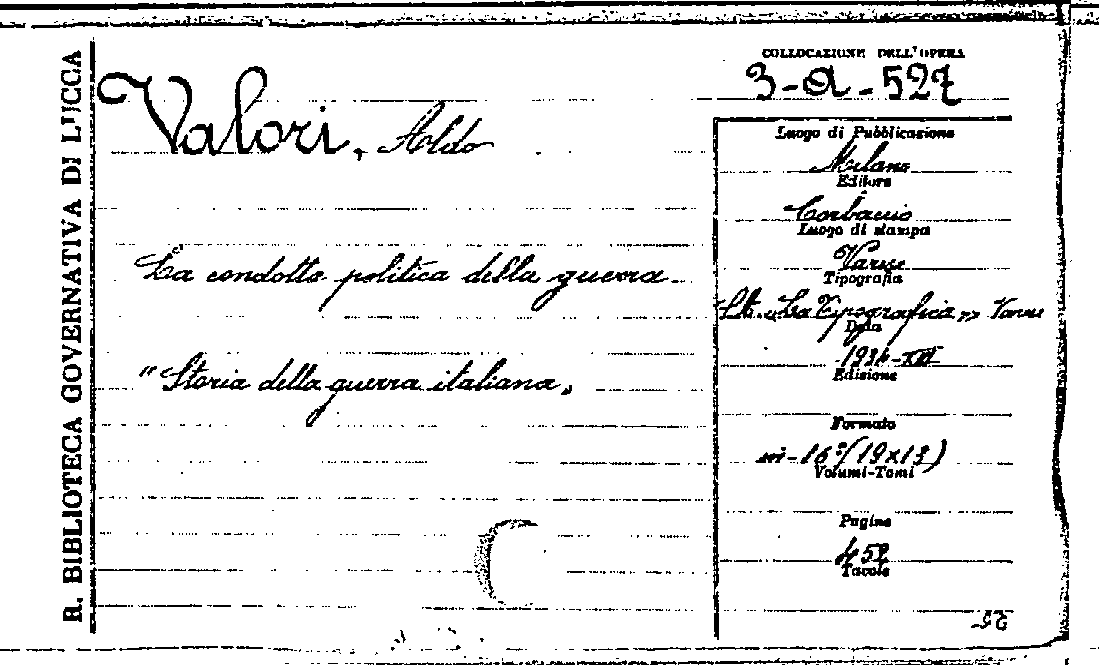 R. BIBLIOTECA GOVERNATIVA DI LUCCA
Valori, Aldo
La condotta politica della guerra
"Storia della guerra italiana„
COLLOCAZIONE DELL'OPERA
3-a-527
Luogo di Pubblicazione
Milano
Editore
Corbaccio
Luogo di stampa
Varese
Tipografia
"La Tipografica„ Varese
Data
1934-XII
Edizione
Formato
in-16°(19x13)
Volumi-Tomi
Pagine
Tavole